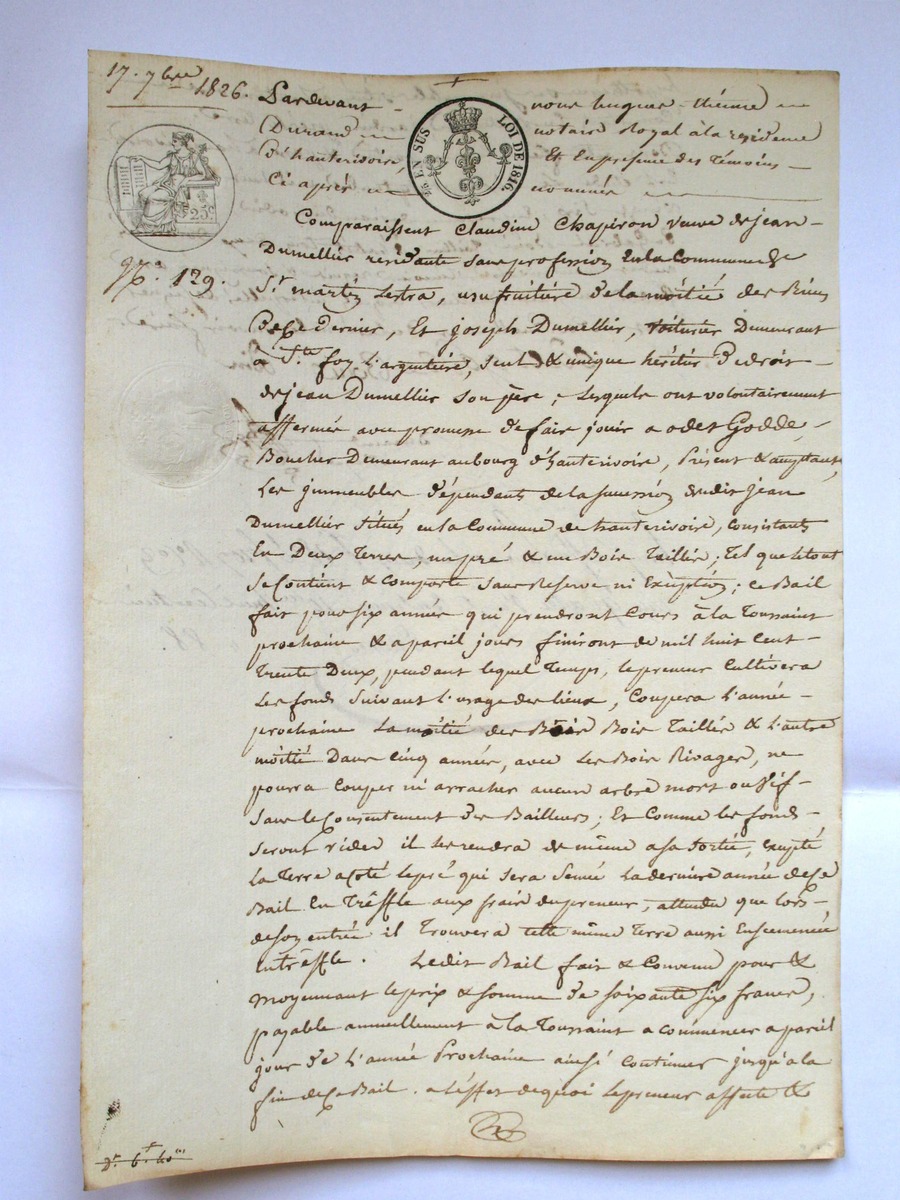 17. 7bre 1826.
Pardevant nous hugues - étienne
Durand notaire Royal à la residence
d'hauterivoire, Et En presence des Témoins
Ci après nommés
EN SUS LOI DE 1816.
25c
No. 129.
Comparaissent Claudine Chapiron veuve de jean
Dumellier residante sans profession En la Commune de
St. martin Lestra, usufruitière de la moitié des Biens
De Ce Dernier, Et joseph Dumellier, voiturier Demeurant
à Ste. foy L'argentière, seul & unique héritier De droit
de jean Dumellier son père; Lesquels ont volontairement
affermés avec promesse de faire jouir a odet Godde,
Boucher Demeurant au bourg d'hauterivoire, Présent & acceptant,
Les jmmeubles dépendants de la succession dudit jean
Dumellier situés en la Commune de hauterivoire, Consistants
En Deux Terres, un pré & un Bois Taillis; Tel que le tout
se Contient & Comporte sans Reserve ni Exception; ce Bail
fait pour six années qui prendront Cours à la Toussaint
prochaine & a pareil jours finiront de mil huit Cent
Trente Deux, pendant lequel Temps, le preneur Cultivera
Les fonds suivant L'usage des lieux, Coupera L'année
prochaine La moitié des Bois Taillis & L'autre
moitié Dans Cinq années, avec Les Bois Rivages, ne
pourra Couper ni arracher aucuns arbres mort ou vif
sans le Consentement des Bailleurs; Et Comme les fonds
seront vides il les rendra de même a sa sortie, excepté
La Terre a coté le pré qui sera semée La derniere année de Ce
Bail En Trèffle aux frais du preneur, attendu que Lors
de son entrée il Trouvera cette même Terre aussi Ensemencée
En trèffle. Ledit Bail fait & Convenu pour &
moyennant le prix & somme de soixante six francs,
payable annuellement à la Toussaint a commencer a pareil
jour de L'année Prochaine ainsi continuer jusqu'a la
fin de Ce Bail. a L'effet de quoi Le preneur affecte &